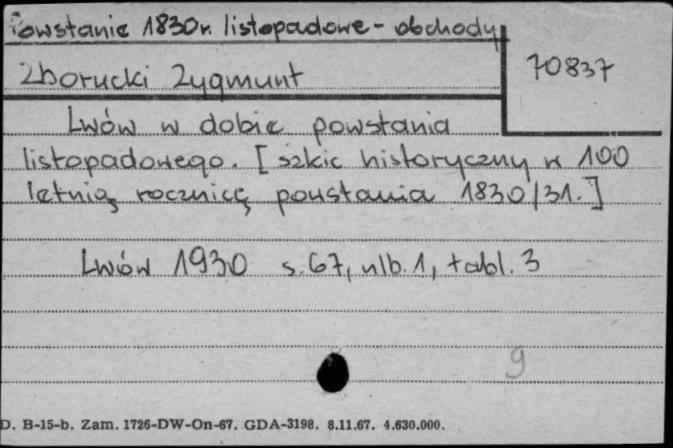 Powstanie 1830 r. listopadowe - obchody
Zborucki Zygmunt
70837
Lwów w dobie powstania
listopadowego. [szkic historyczny w 100
letnią rocznicę powstania 1830/31.]
Lwów 1930 s. 67, nlb. 1, tabl. 3
9
D. B-15-b. Zam. 1726-DW-On-67. GDA-3198. 8.11.67. 4.630.000.